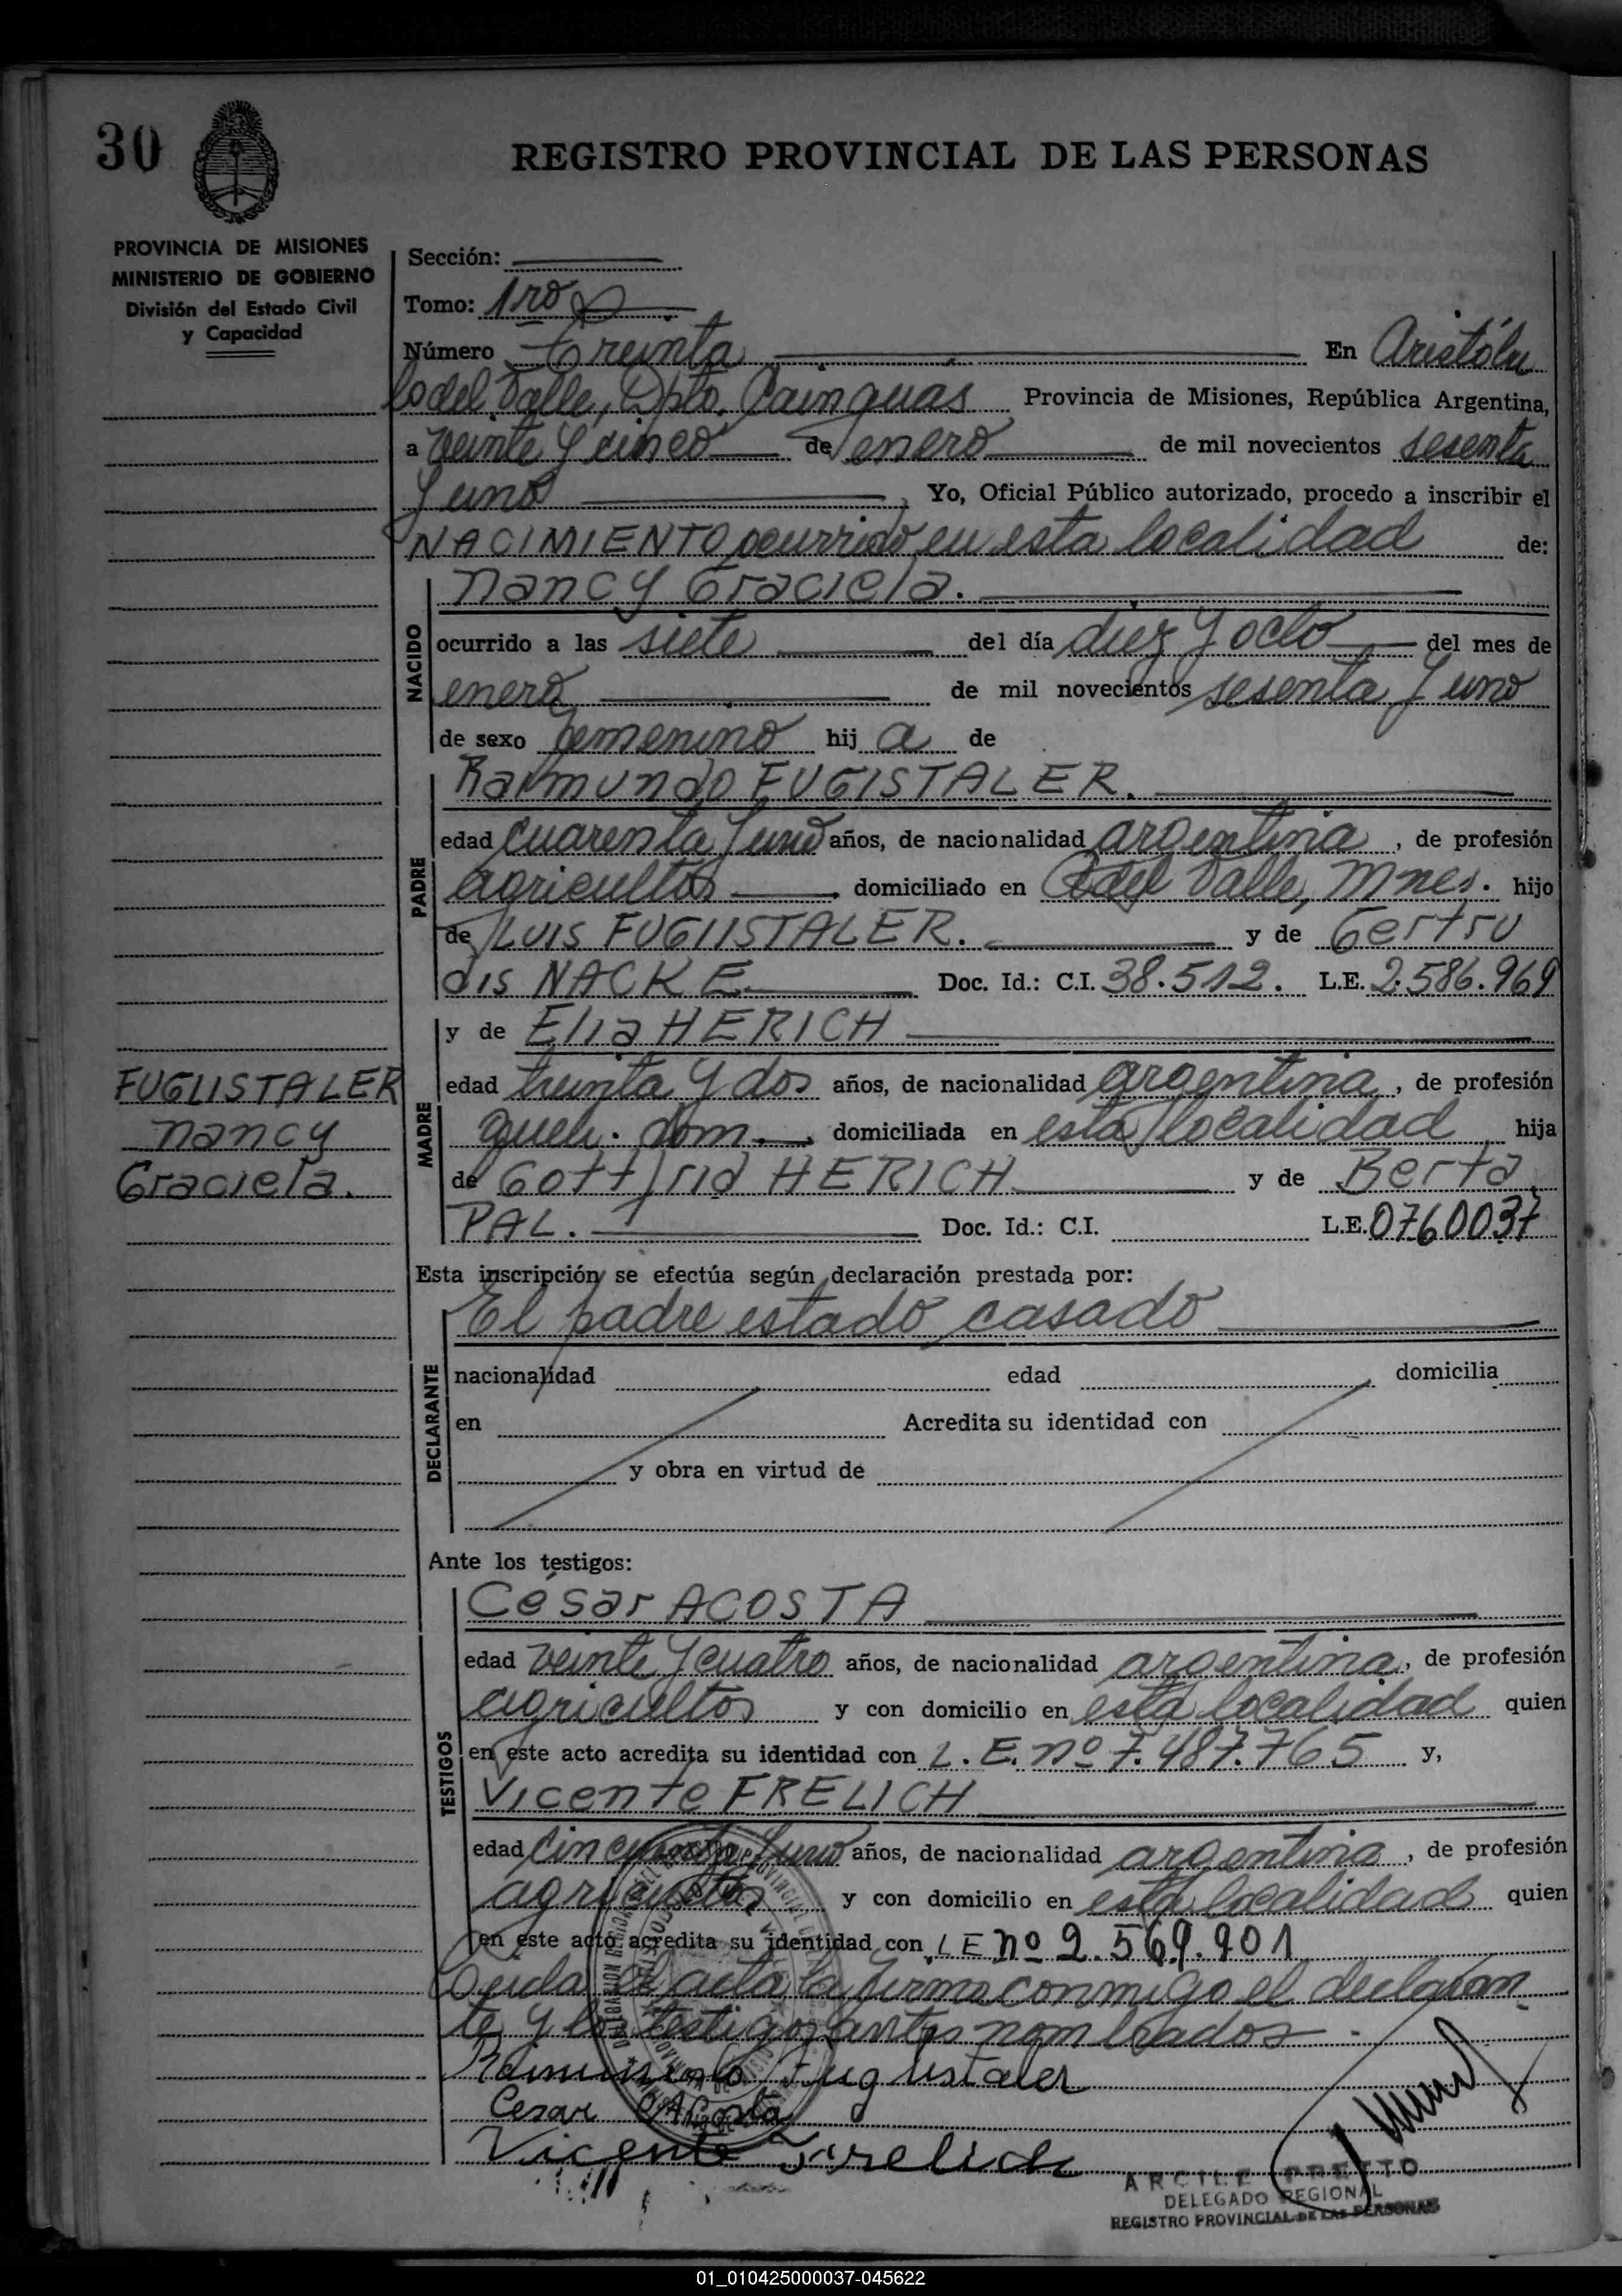 30
REGISTRO PROVINCIAL DE LAS PERSONAS
PROVINCIA DE MISIONES
MINISTERIO DE GOBIERNO
División del Estado Civil
y Capacidad
Sección:
Tomo: 1ro
Número Treinta En Aristóbu
lo del Valle, Dpto. Cainguas Provincia de Misiones, República Argentina,
a veinte y cinco de enero de mil novecientos sesenta
y uno , Yo, Oficial Público autorizado, procedo a inscribir el
NACIMIENTO ocurrido en esta localidad de:
Nancy Graciela.
NACIDO
ocurrido a las siete del día diez y ocho del mes de
enero de mil novecientos sesenta y uno
de sexo femenino hij a de
Raimundo FUGISTALER.
PADRE
edad cuarenta y uno años, de nacionalidad argentina , de profesión
agricultor domiciliado en A. del Valle, Mnes. hijo
de LUIS FUGLISTALER. y de Gertru
dis NACKE Doc. Id.: C.I. 38.512. L.E. 2.586.969
y de Elia HERICH
FUGLISTALER
Nancy
Graciela.
MADRE
edad treinta y dos años, de nacionalidad argentina , de profesión
queh. dom. , domiciliada en esta localidad hija
de Gottfrid HERICH y de Berta
PAL. Doc. Id.: C.I. L.E. 0760037
Esta inscripción se efectúa según declaración prestada por:
El padre estado casado
DECLARANTE
nacionalidad edad domicilia
en Acredita su identidad con
y obra en virtud de
Ante los testigos:
César ACOSTA
TESTIGOS
edad veinte y cuatro años, de nacionalidad argentina , de profesión
agricultor y con domicilio en esta localidad quien
en este acto acredita su identidad con L.E. nº 7.487.765 y,
Vicente FRELICH
edad cincuenta y uno años, de nacionalidad argentina , de profesión
agricultor y con domicilio en esta localidad quien
en este acto acredita su identidad con LE nº 2.569.901
Leída el acta la firma conmigo el declaran
te y los testigos antes nombrados.
Raimundo Fuglistaler
Cesar Acosta
Vicente Frelich
ARCILE PRETTO
DELEGADO REGIONAL
REGISTRO PROVINCIAL DE LAS PERSONAS
01_010425000037-045622